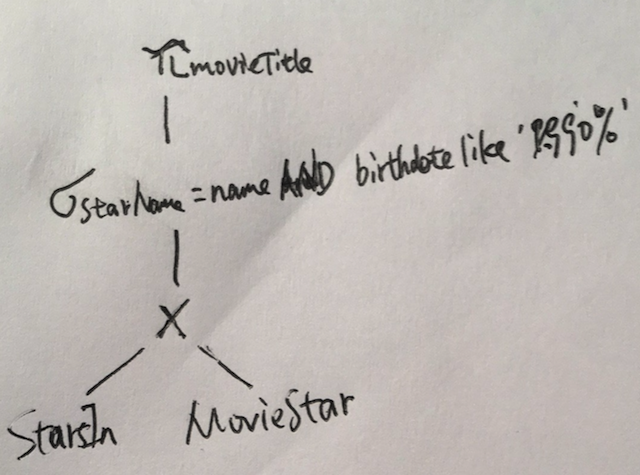 π movieTitle
σ starName = name AND birthdate like '%'
X
StarsIn MovieStar